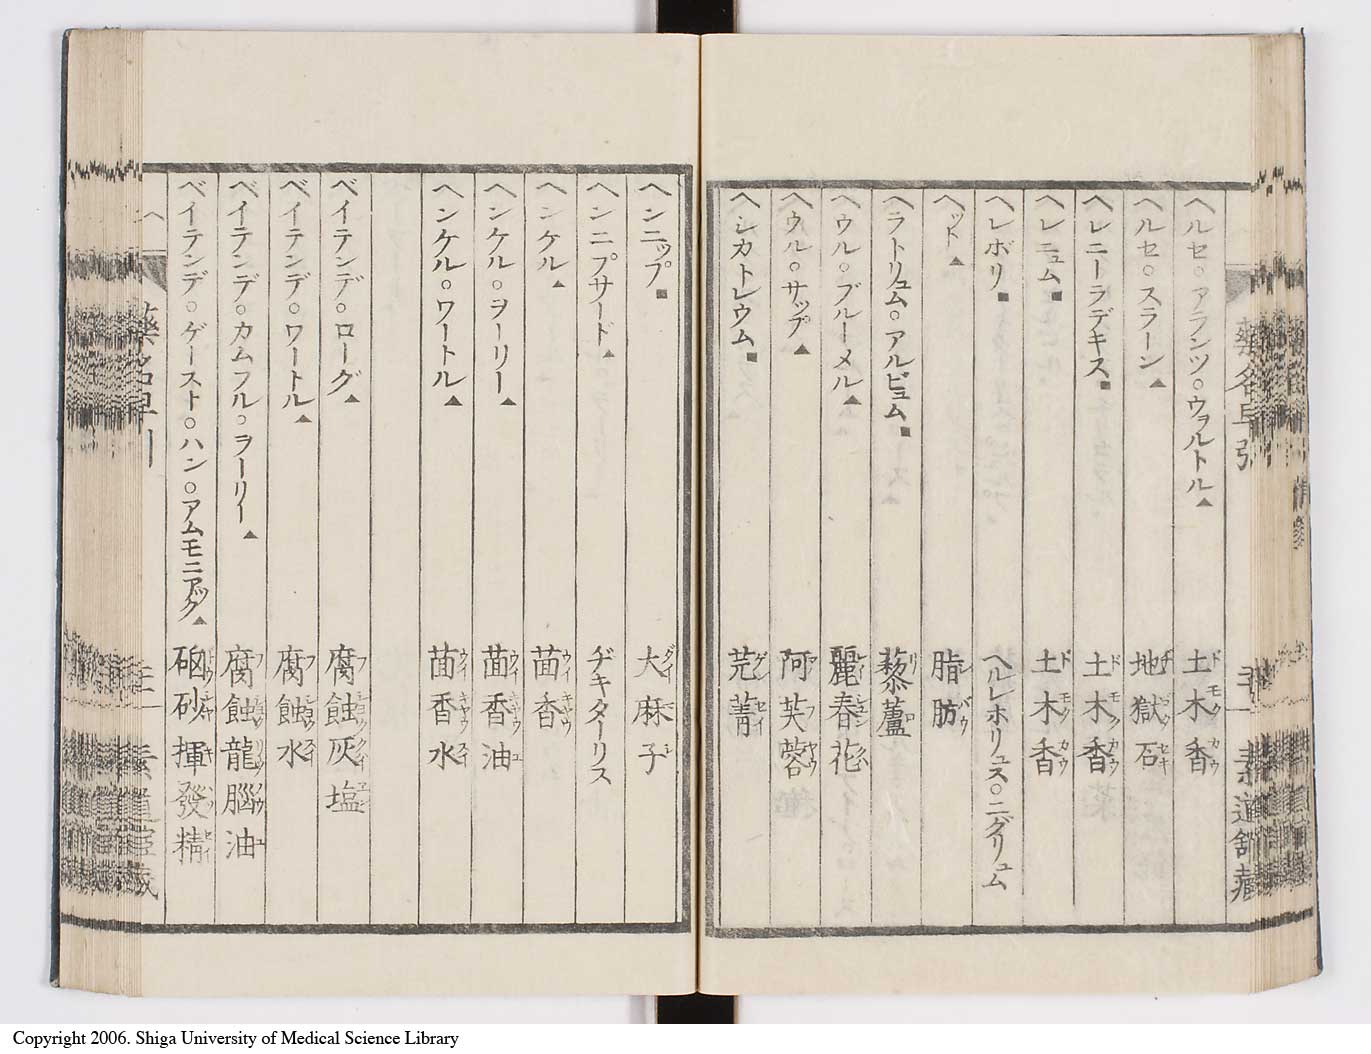 藥名早引
ヘルセ○アランツ○ウァルトル▲ 土木香
ヘルセ○スラーン▲ 地獄石
ヘレニーラデキス■ 土木香
ヘレニュム■ 土木香
ヘレボリ■ ヘルレホリュス○ニグリュム
ヘット▲ 脂肪
ヘラトリュム○アルビュム■ 藜蘆
ヘウル○ブルーメル▲ 麗春花
ヘウル○サップ▲ 阿芙蓉
ヘシカトレウム■ 芫菁
ヘンニップ■ 大麻子
ヘンニプサード▲ ヂキターリス
ヘンケル▲ 茴香
ヘンケル○ヲーリー▲ 茴香油
ヘンケル○ワートル▲ 茴香水
ベイテンデ○ローグ▲ 腐蝕灰塩
ベイテンデ○ワートル▲ 腐蝕水
ベイテンデ○カムフル○ヲーリイ▲ 腐蝕龍腦油
ベイテンデ○ゲースト○ハン○アムモニアック▲ 硇砂揮發精
Copyright 2006. Shiga University of Medical Science Library